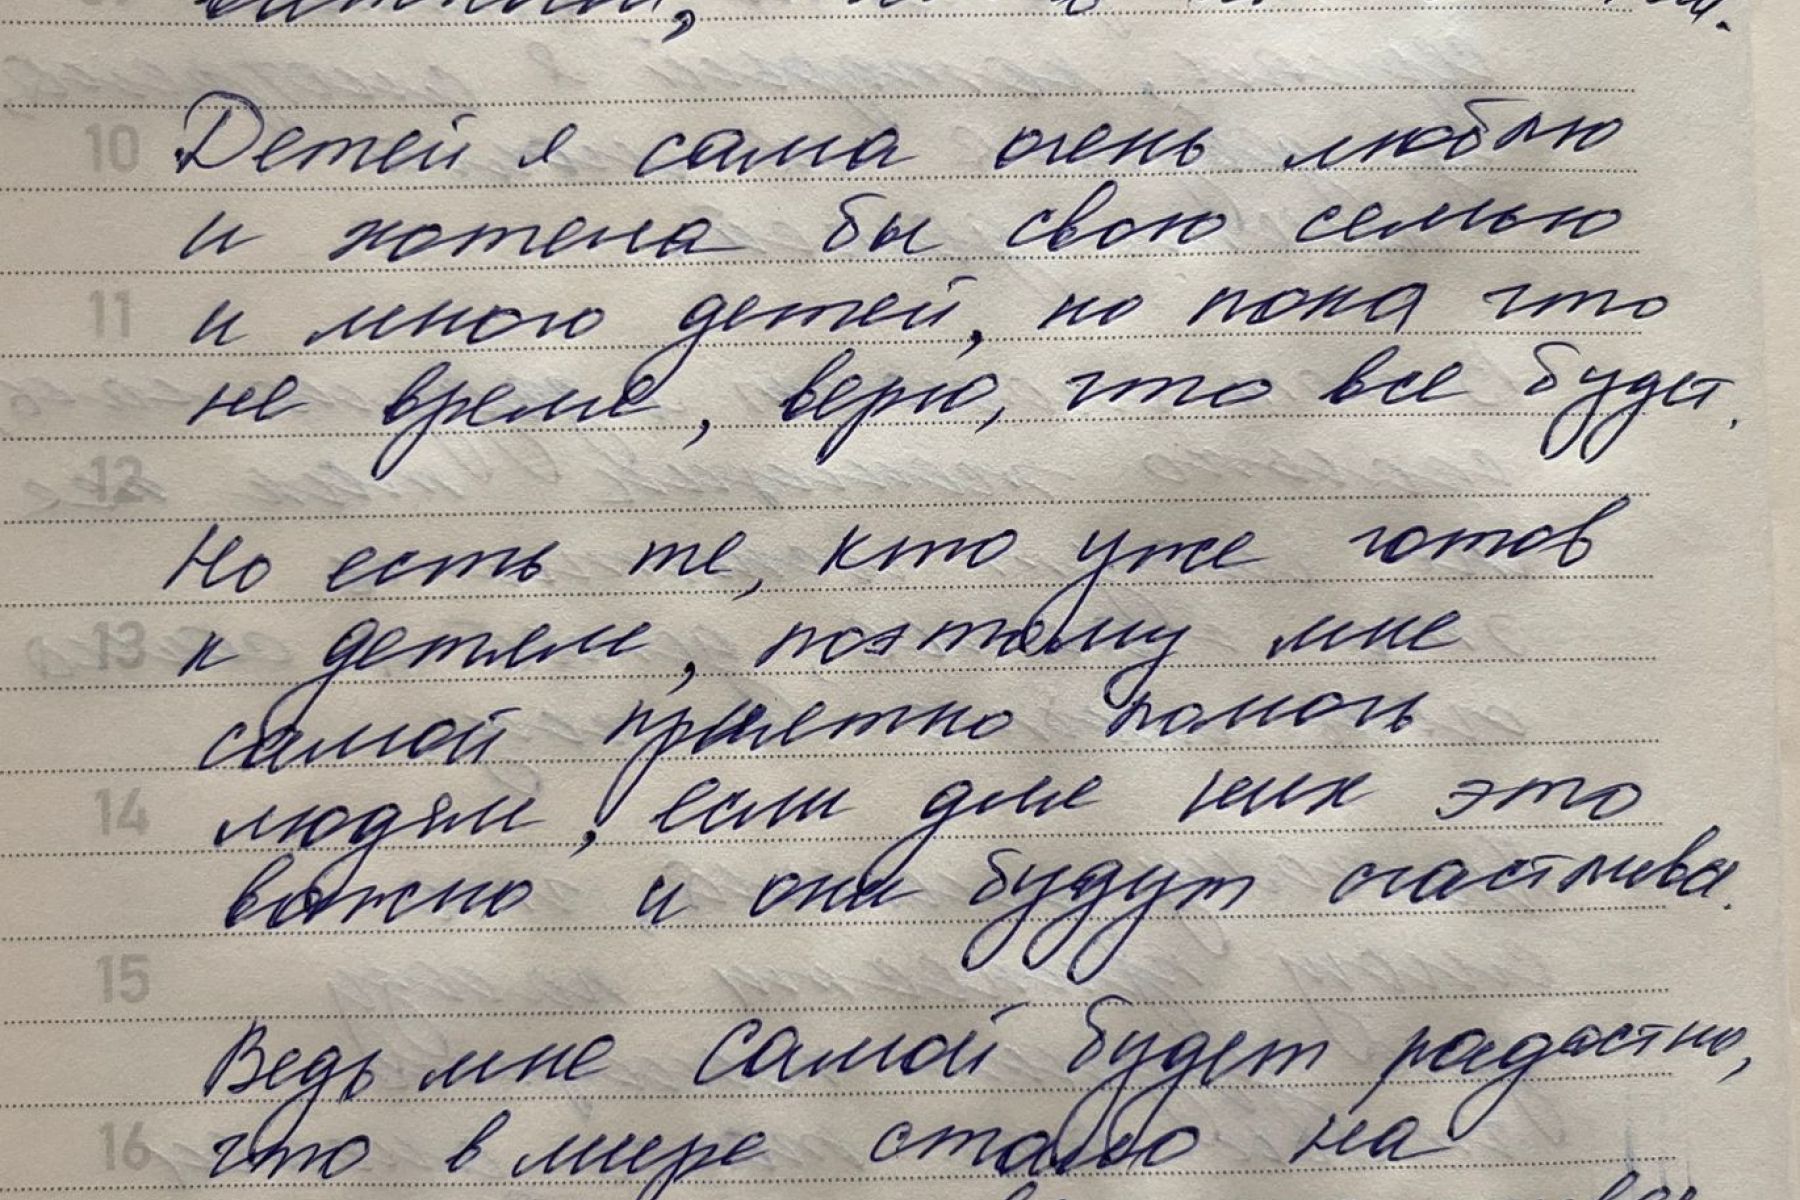 Детей я сама очень люблю
и хотела бы свою семью
и много детей, но пока что
не время, верю, что все будет.
Но есть те, кто уже готов
к детям, поэтому мне
самой приятно помочь
людям, если для них это
важно и они будут счастливы.
Ведь мне самой будет радостно,
что в мире стало на
10
11
12
13
14
15
16